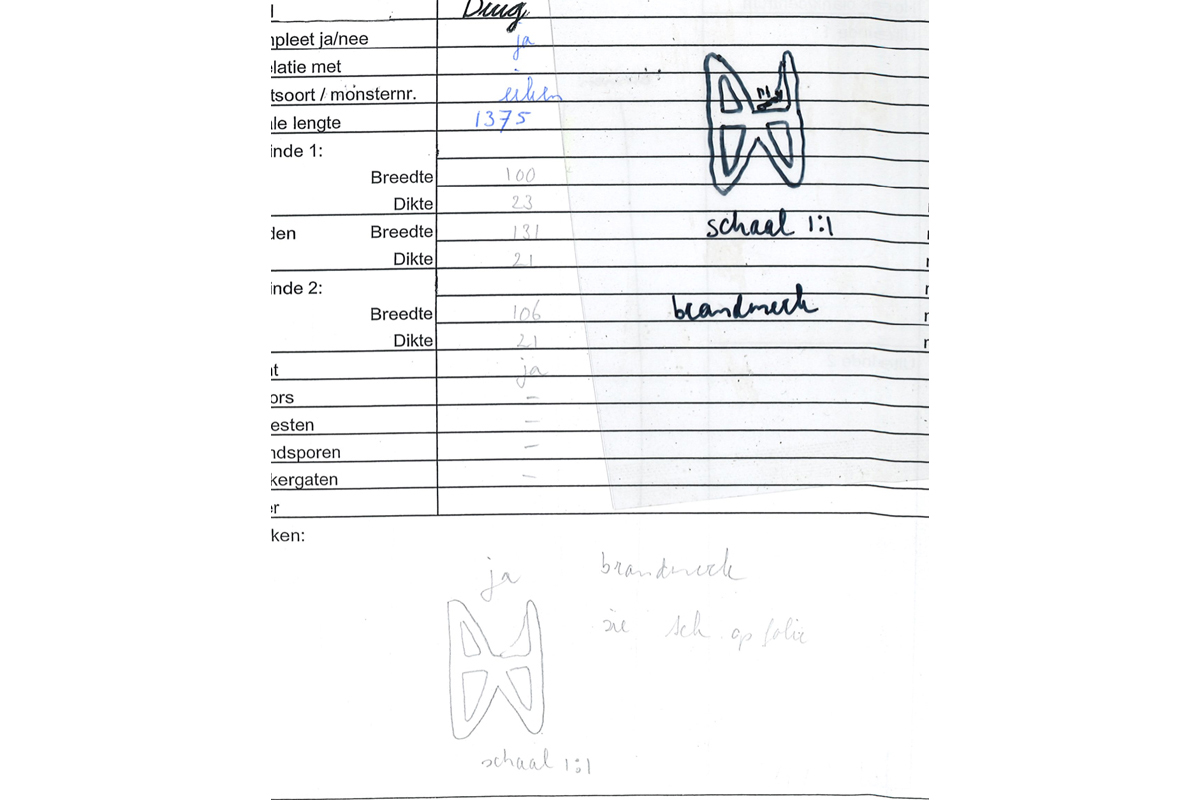 l Duig
npleet ja/nee ja
elatie met
tsoort / monsternr. eiken
ale lengte 1375
inde 1:
Breedte 100
Dikte 23
den Breedte 131
Dikte 21
inde 2:
Breedte 106
Dikte 21
nt ja
ors –
esten –
ndsporen –
kergaten –
er
ken:
schaal 1:1
brandmerk
ja brandmerk
zie sch op folie
schaal 1:1